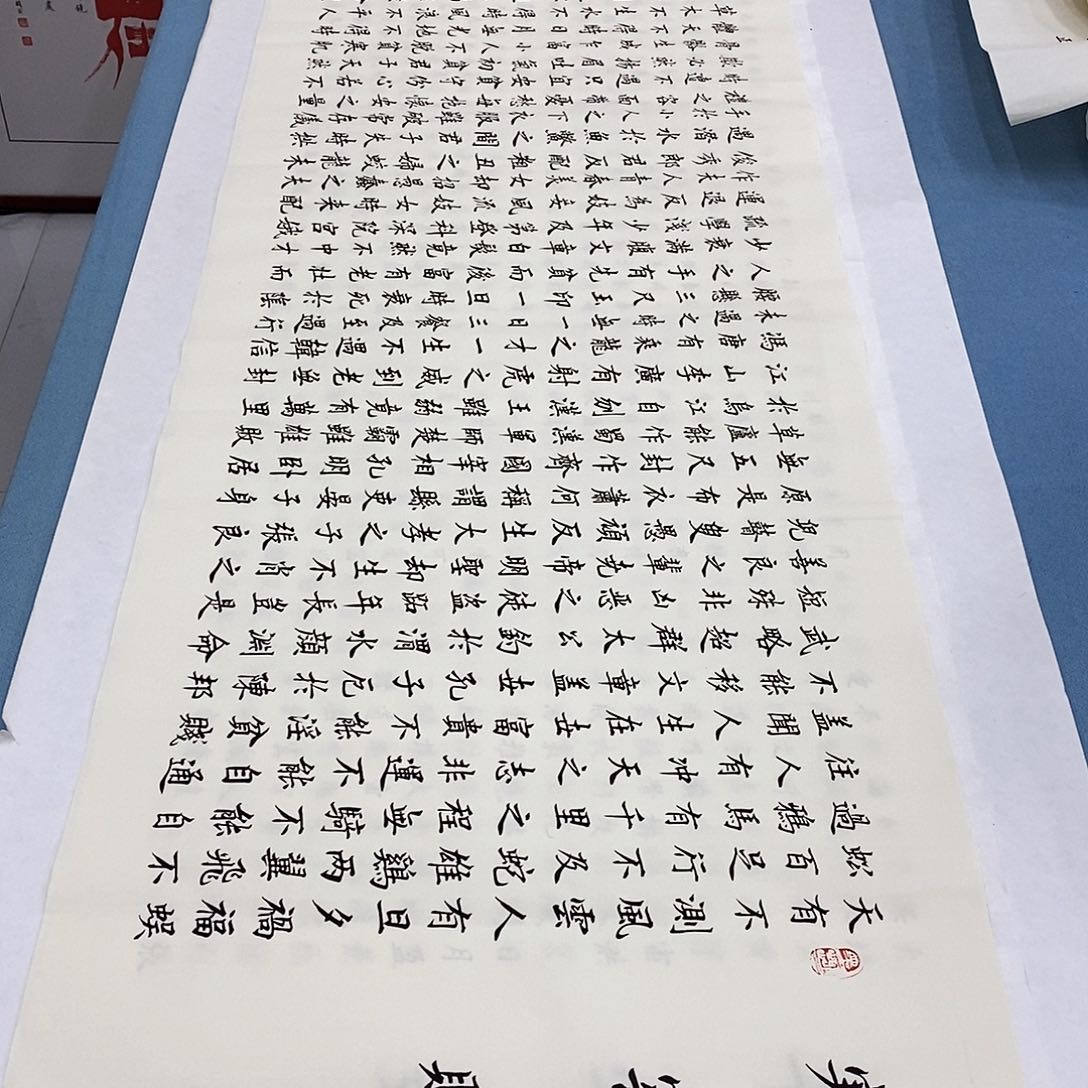 天有不測風雲人有旦夕禍福蜈
蚣百足行不及蛇雄雞兩翼飛不
過鴉馬有千里之程無騎不能自
往人有沖天之志非運不能自通
蓋聞人生在世富貴不能淫貧賤
不能移文章蓋世孔子厄於陳邦
武略超群太公釣於渭水顏淵命
短殊非凶惡之徒盜跖年長豈是
善良之輩堯帝明聖却生不肖之
兒瞽叟愚頑反生大孝之子張良
原是布衣蕭何稱謂縣吏晏子身
無五尺封作齊國宰相孔明卧居
草廬能作蜀漢軍師楚霸雖雄敗
於烏江自刎漢王雖弱竟有萬里
江山李廣有射虎之威到老無封
馮唐有乘龍之才一生不遇韓信
未遇之時無一日三餐及至遇行
腰懸三尺玉印一旦時衰死於陰
人之手有先貧而後富有老壯而
少衰滿腹文章白發竟然不中才
疏學淺少年及第登科深院宮娥
運退反為妓妾風流妓女時來配
作夫人青春美女却招愚蠢之夫
俊秀郎君反配粗丑之婦蛟龍未
遇潛水於魚鱉之間君子失時拱
手於小人之下衣服雖破常存儀
禮之容面帶憂愁每抱懷安之量
時遭不遇只宜安貧守份心若不
欺必然揚眉吐氣初貧君子天然
骨骼生成乍富小人不脫貧寒肌
體天不得時日月無光地不得時
草木不生水不得時風浪不平人